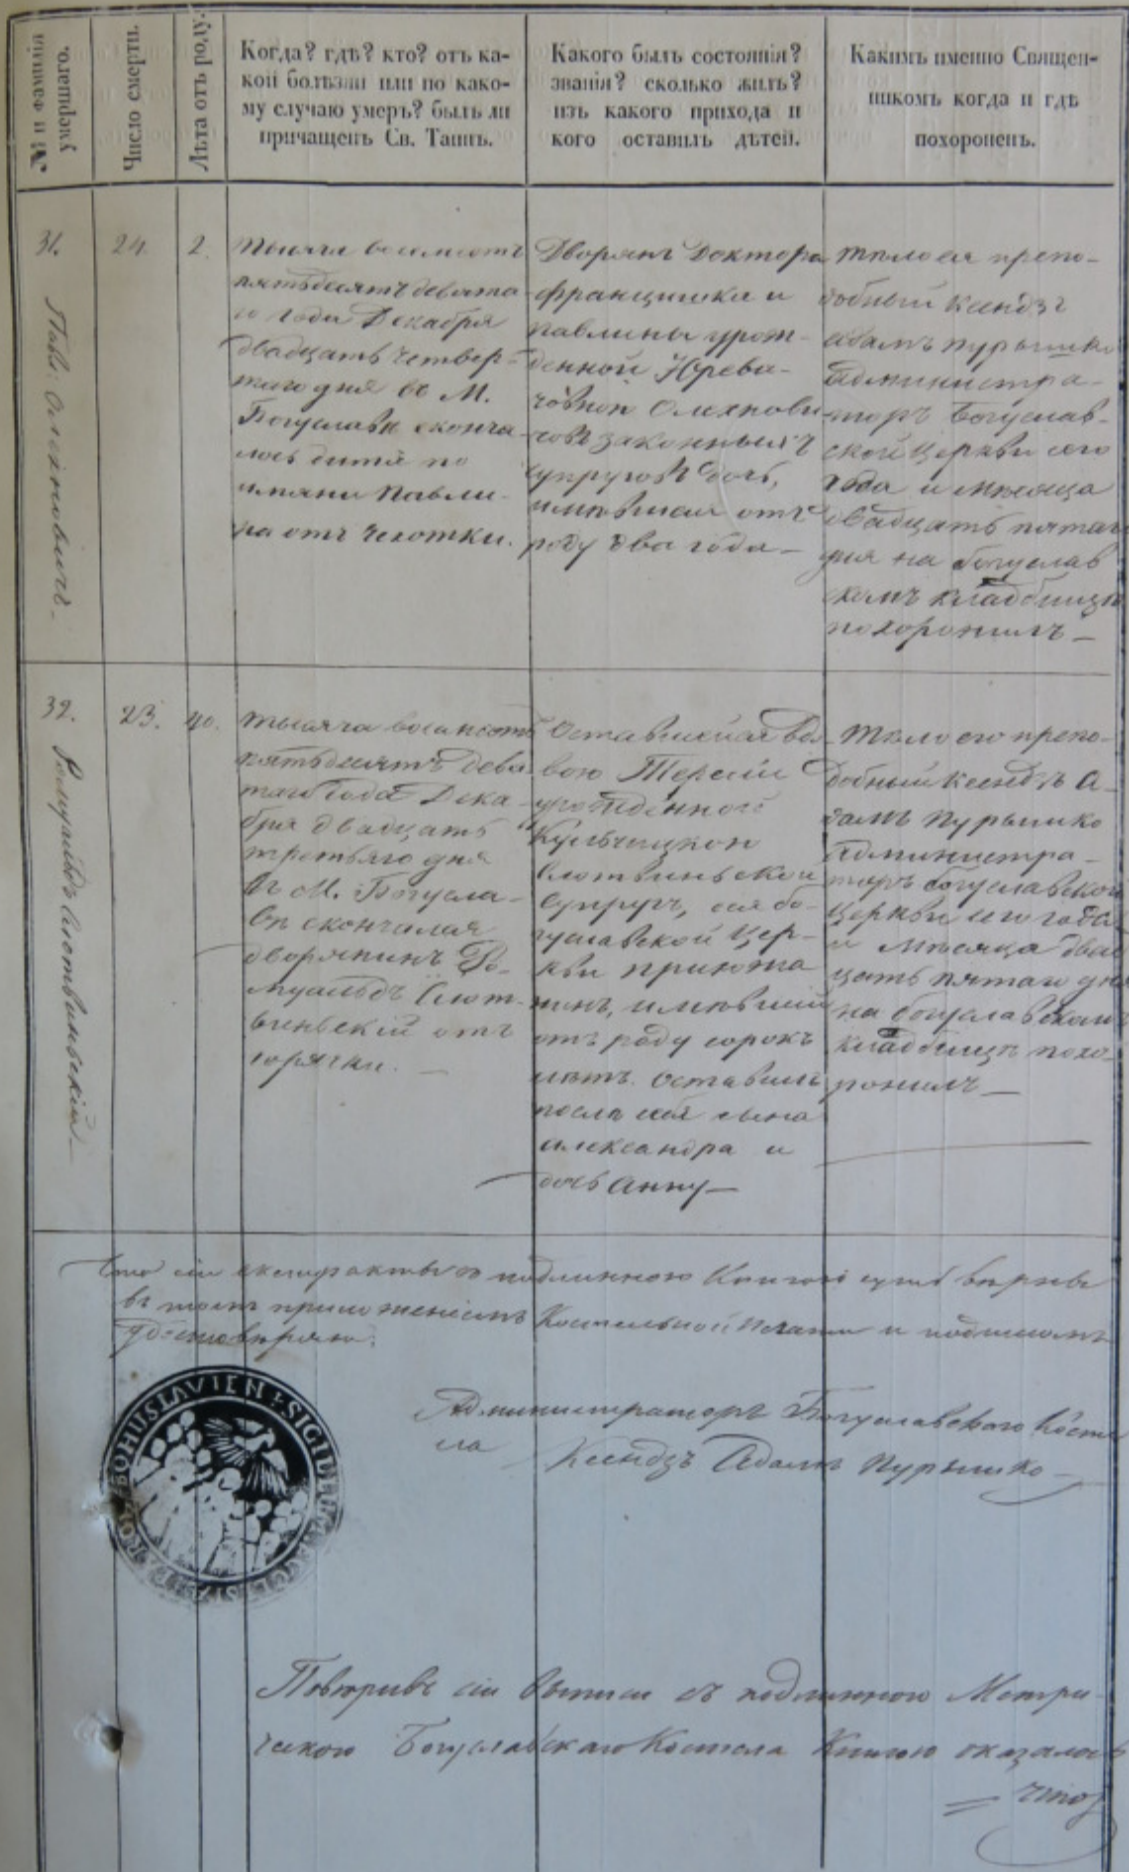 № и фамилія
умершаго.
Число смерти.
Лѣта отъ роду.
Когда? гдѣ? кто? отъ ка-
кой болѣзни или по како-
му случаю умеръ? былъ ли
причащенъ Св. Таинъ.
Какого былъ состоянія?
званія? сколько жилъ?
изъ какого прихода и
кого оставилъ дѣтей.
Какимъ именно Священ-
никомъ когда и гдѣ
похороненъ.
31.
Павл: Олехновичъ.
24.
2.
Тысяча восемсотъ
пятьдесятъ девята-
го года Декабря
двадцать четвер-
таго дня въ М.
Богуславѣ сконча-
лось дитя по
имяни Павли-
на отъ чехотки.
Дворянъ Доктора
Францишка и
Павлины урож-
денной Юреви-
човной Олехнови-
човъ законныхъ
супруговъ дочь,
имѣвшая отъ
роду два года —
Тѣло ея препо-
добный Ксендзъ
Адамъ Пурышко
Администра-
торъ Богуслав-
ской Церкви сего
года и мѣсяца
двадцать пятаго
дня на Богуслав
скомъ кладбищѣ
похоронилъ —
32.
Ромуальдъ Слотвиньскій —
23.
40.
Тысяча восемсотъ
пятьдесятъ девя-
таго года Дека-
бря двадцать
третьяго дня
въ М. Богусла-
вѣ скончался
дворянинъ Ро-
муальдъ Слот-
виньскій отъ
горячки. —
Оставшейся вдо-
вою Терезіи
урожденной
Кульчицкой
Слотвиньской
Супругъ, сея бо-
гуславской Цер-
кви прихожа
нинъ, имѣвшій
отъ роду сорокъ
лѣтъ. Оставилъ
послѣ себя сына
Александра и
дочь Анну —
Тѣло его препо-
добный Ксендзъ А-
дамъ Пурышко
Администра-
торъ Богуславской
Церкви сего года
и мѣсяца двад
цать пятаго дня
на Богуславскомъ
кладбищѣ похо-
ронилъ —
Что сіи екстракты съ подлинною Книгою суть вѣрны
въ томъ приложеніемъ Костельной печати и подписомъ
удостовѣряю.
Администраторъ Богуславского Косте
ла Ксендзъ Адамъ Пурышко
BOHUSLAVIEN SIGILLUM
Повѣривъ сіи выписи съ подлинною Метри
ческою Богуславскаго Костела Книгою оказалось
что